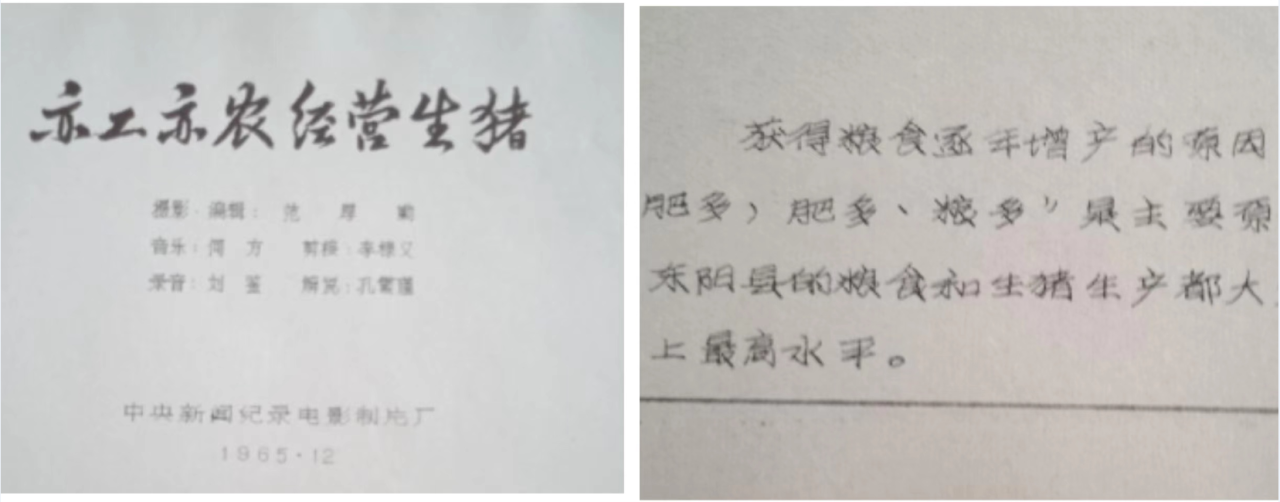 亦工亦农经营生猪
摄影·编辑：范厚勤
音乐：何方 剪接：李禄义
录音：刘鉴 解说：孔繁瑾
中央新闻纪录电影制片厂
1965·12
获得粮食逐年增产的原因
肥多，肥多、粮多”是主要原
东阳县的粮食和生猪生产都大
上最高水平。